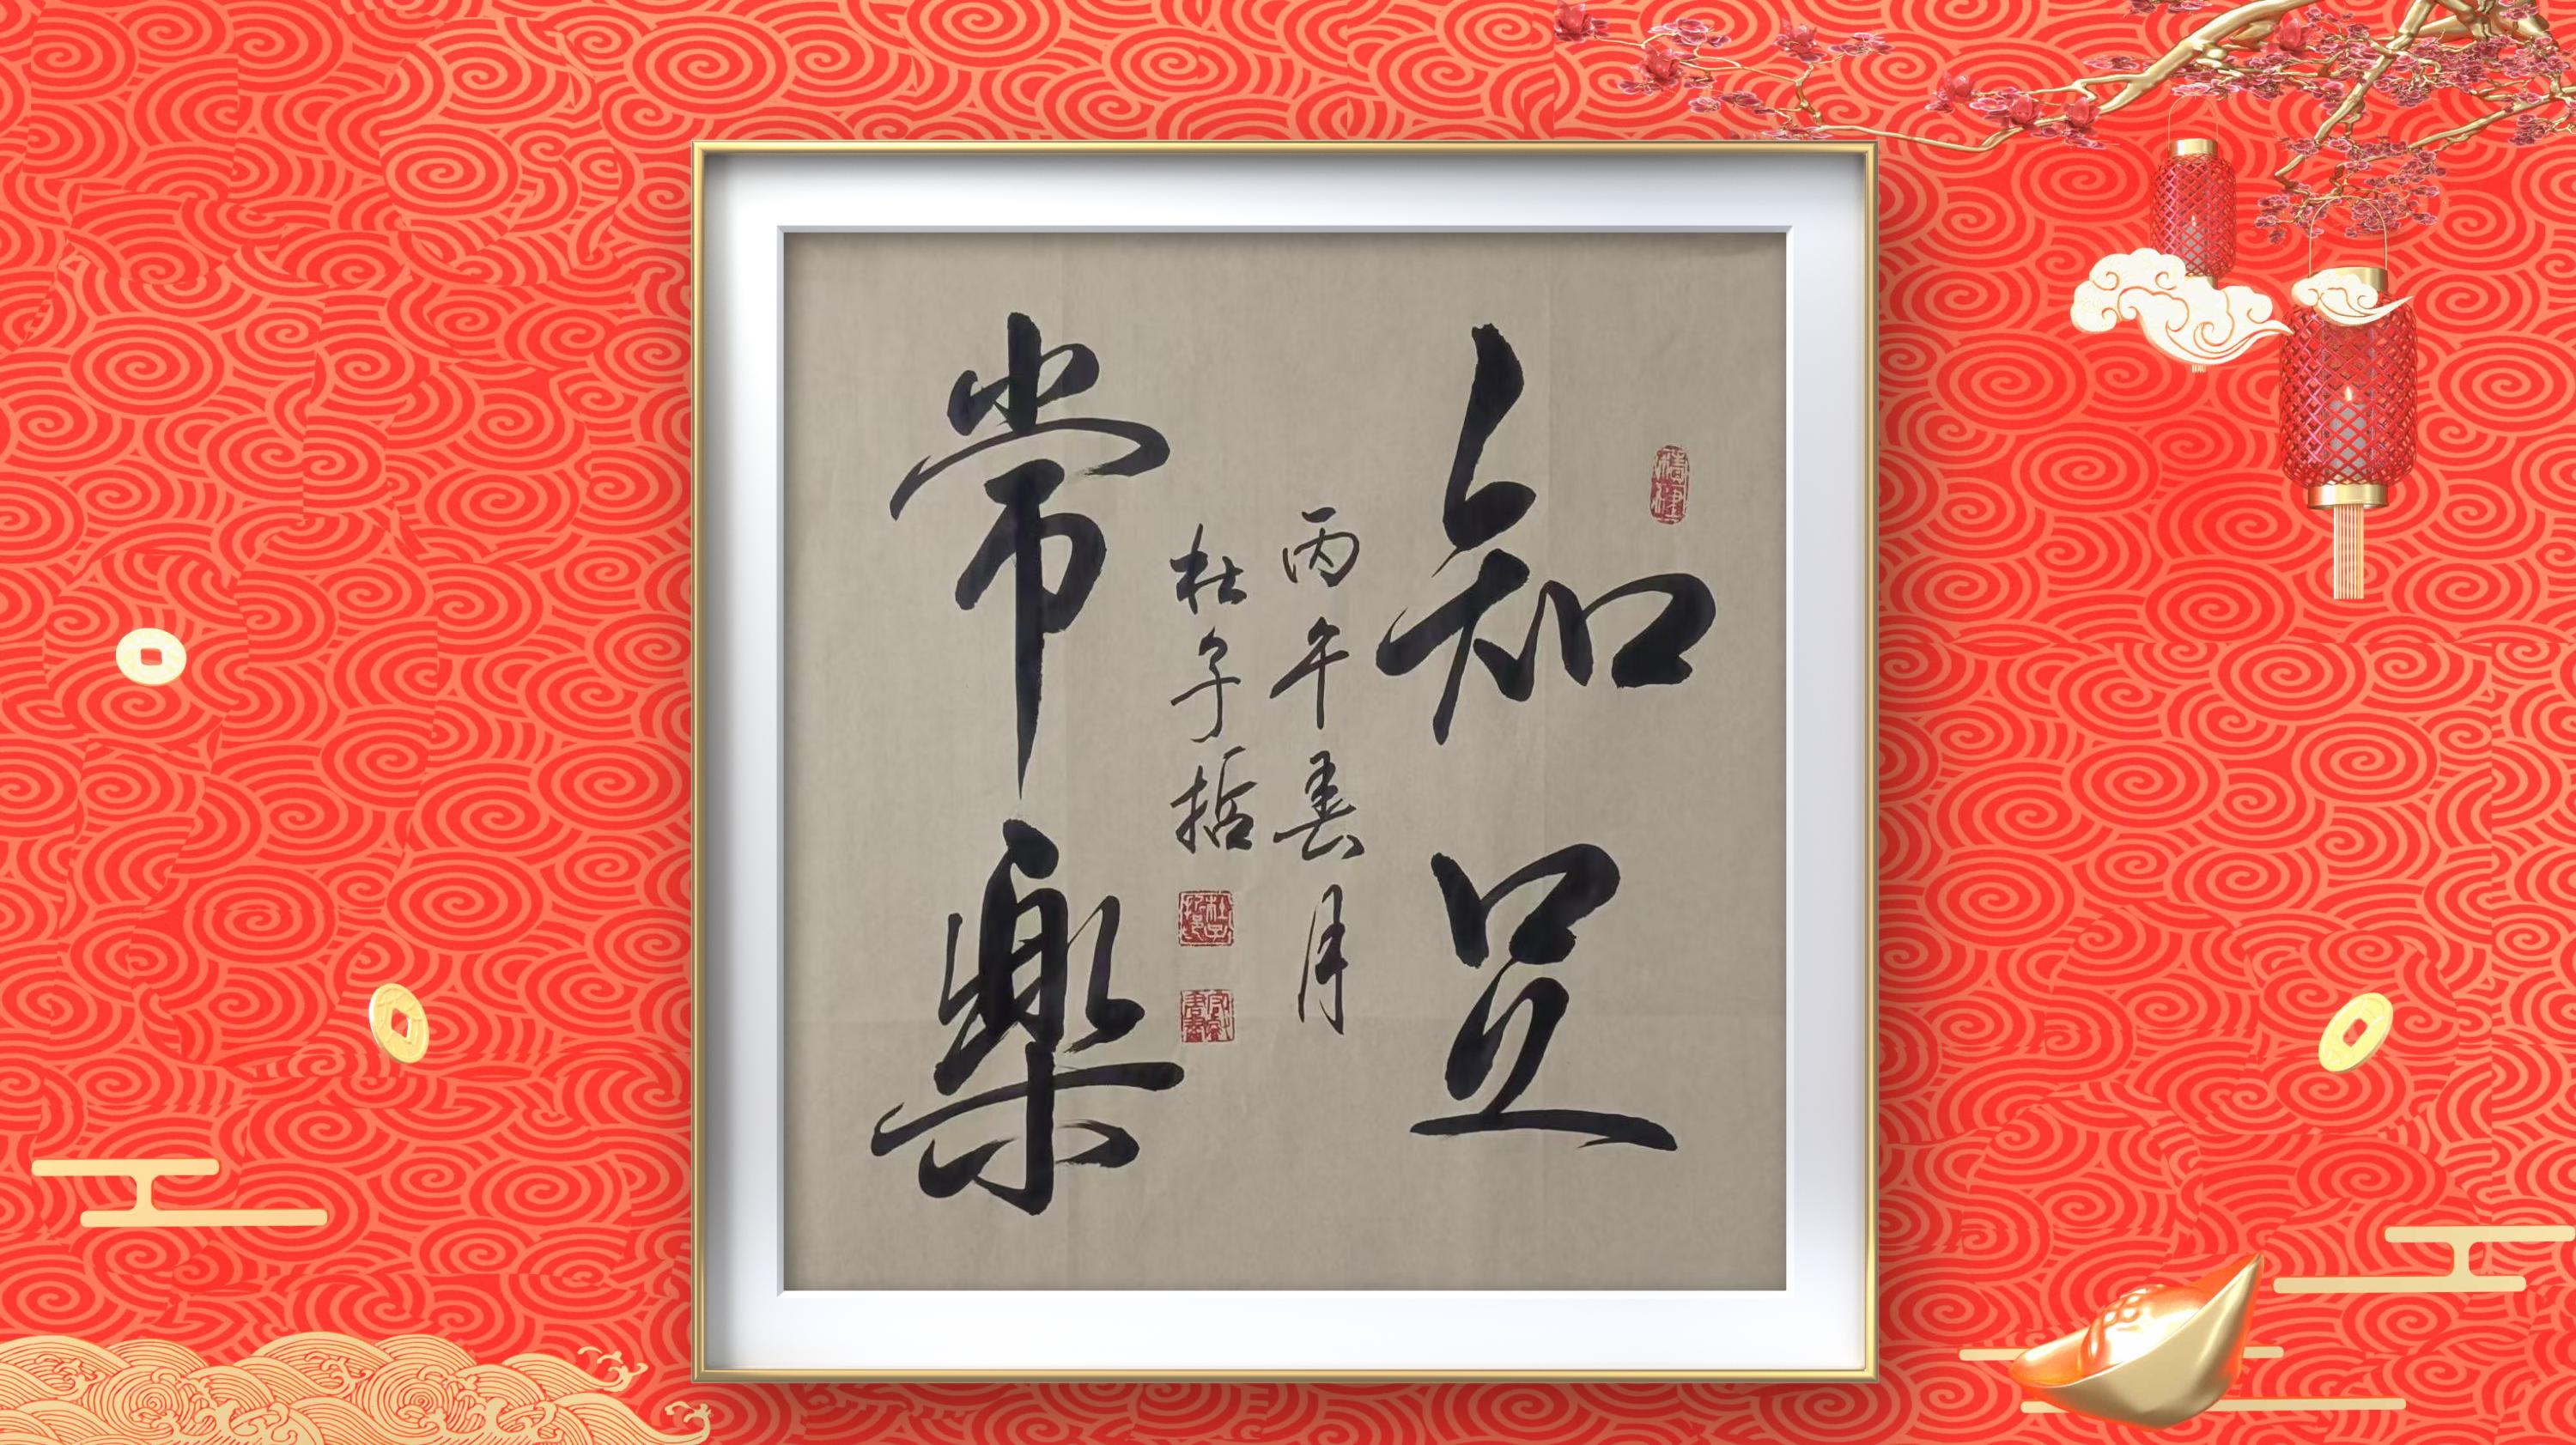 知足
丙午春月
杜子哲
常樂